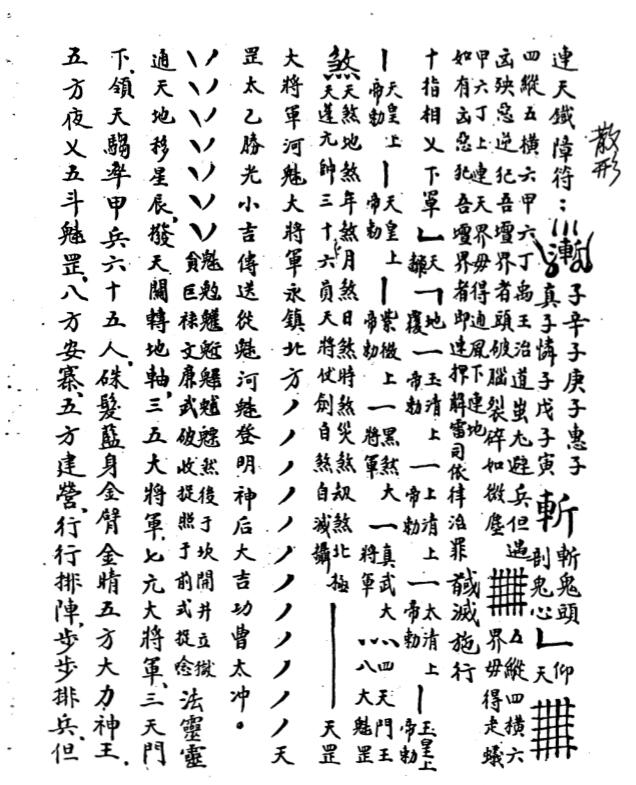 散形
連天鐵障符：漸
子辛子庚子惠子
真子憐子戊子寅
斬
斬鬼頭
剖鬼心
仰
天
四縱五橫六甲六丁禹王治道蚩尤避兵但遇
凶殃惡逆犯吾壇界者頭破腦裂碎如微塵
五縱四橫六
界毋得走蟻
甲六丁上連天界毋得通風下連地
如有凶惡犯吾壇界者即速押解雷司依律治罪
馘滅施行
十指相乂下罩
天翻
地覆
玉清上帝勅
上清上帝勅
太清上帝勅
玉皇上帝勅
天皇上帝勅
天皇上帝勅
紫微上帝勅
黑煞大將軍
真武大將軍
四天門王
八大魁罡
煞
天煞地煞年煞月煞日煞時煞災煞劫煞北極
天蓬元帥三十六員天將伏劍自煞自滅攝
天罡
大將軍河魁大將軍永鎮北方ノノノノノノノノノノノ天
罡太乙勝光小吉傳送從魁河魁登明神后大吉功曹太冲。
然後于坎間井立獄
貪巨祿文廉武破收捉照于前式捉唸
法靈靈
通天地移星辰，發天關轉地軸，三五大將軍、七元大將軍、三天門
下，領天騶率甲兵六十五人，硃髮藍身金臂金睛五方大力神王，
五方夜乂五斗魁罡，八方安寨，五方建營，行行排陣，步步排兵，但